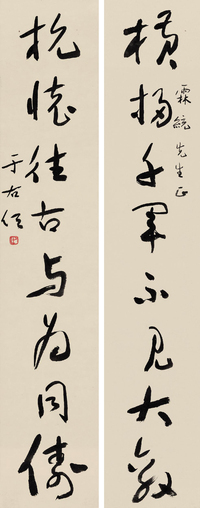 橫掃千軍不見大敵
霖統先生正
抗懷往古与為同儔
于右任